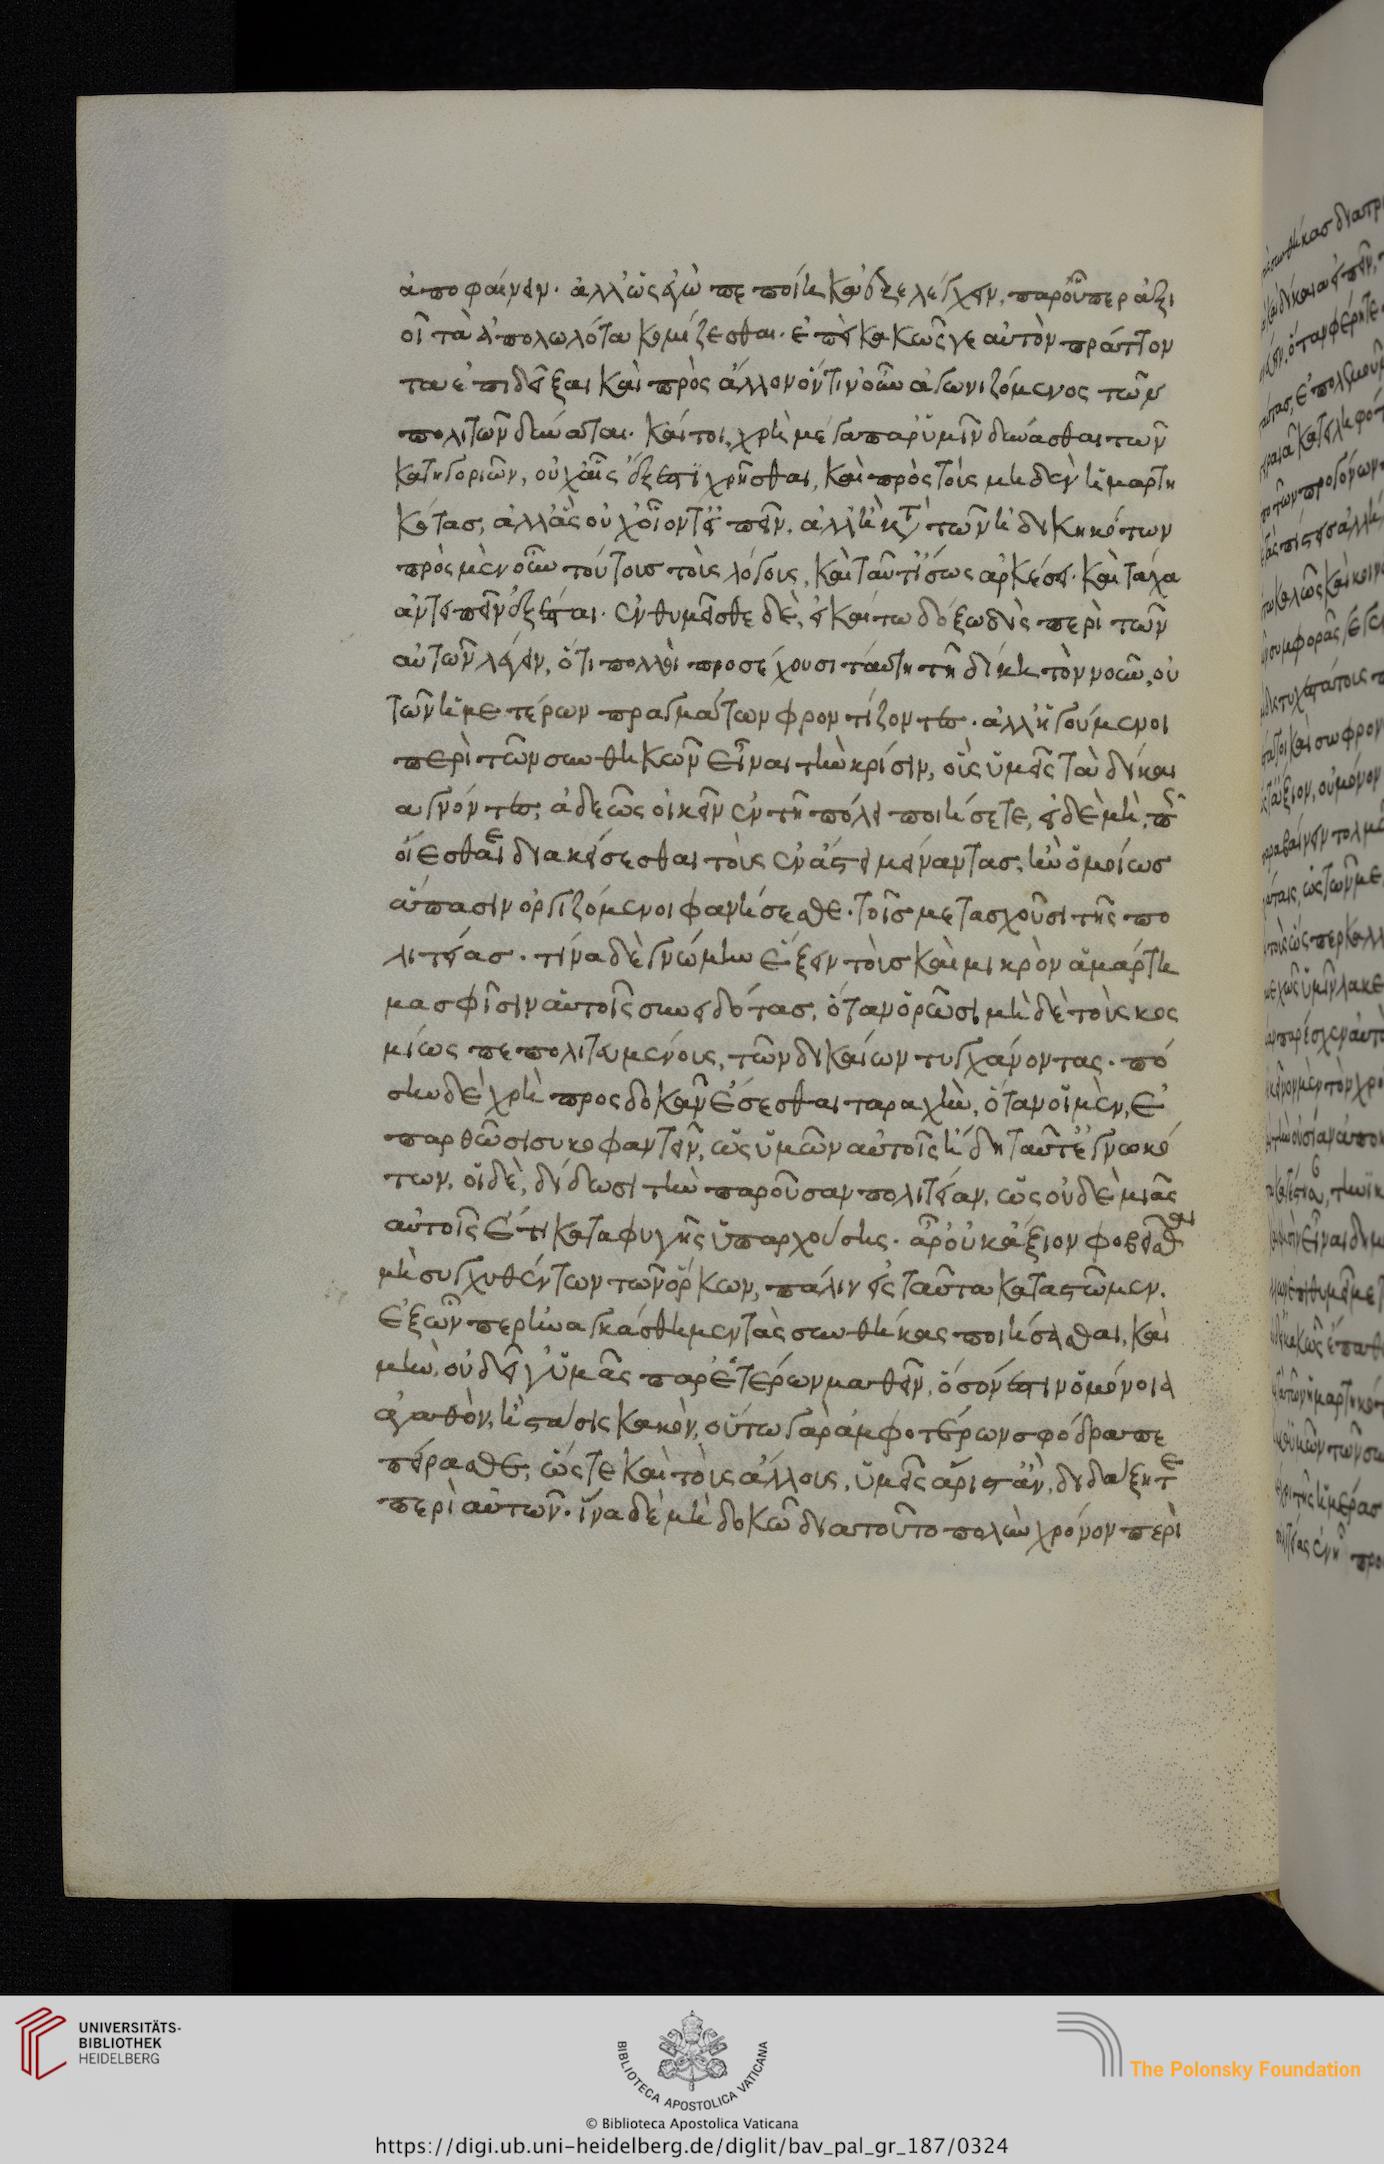 ἀποφαίνειν· ἀλλ' ὡς ἐγὼ πεποίηκα δεῖ ἐξελέγχειν, παρ' οὗπερ ἀξι
οῖ τὰ ἀπολωλότα κομίζεσθαι· ἐπεὶ κακῶς γε αὐτὸν πράττον
τα ἐπιδεῖξαι καὶ πρὸς ἄλλον ὅντιν' οὖν ἀγωνιζόμενος τῶν
πολιτῶν δύναται· καίτοι, χρὴ μέγα παρ' ὑμῖν δύνασθαι τῶν
κατηγοριῶν, οὐχ αἷς ἔξεστι χρῆσθαι, καὶ πρὸς τοὺς μηδὲν ἡμαρτη
κότας, ἀλλ' ἃς οὐχ οἷόν τ' εἰπεῖν, ἀλλ' ἢ κατὰ τῶν ἠδικηκότων
πρὸς μὲν οὖν τούτους τοὺς λόγους, καὶ ταῦτ' ἴσως ἀρκέσει· καὶ τάχα
ἀντειπεῖν ἐξέσται· ἐνθυμεῖσθε δὲ, εἰ καί τω δόξω δὶς περὶ τῶν
αὐτῶν λέγειν, ὅτι πολλοὶ προσέχουσι ταύτη τῆ δίκη τὸν νοῦν, οὐ
τῶν ἡμετέρων πραγμάτων φροντίζοντες· ἀλλ' ἡγούμενοι
περὶ τῶν συνθηκῶν εἶναι τὴν κρίσιν, οὓς ὑμεῖς τὰ δίκαι
α γνόντες, ἀδεῶς οἰκεῖν ἐν τῆ πόλει ποιήσετε, εἰ δὲ μὴ, πῶς
οἴεσθαι διακείσεσθαι τοὺς ἐν ἄστει μείναντας, ἢν ὁμοίως
ἅπασιν ὀργιζόμενοι φανήσεσθε· τοῖς μετασχοῦσι τῆς πο
λιτείας· τίνα δὲ γνώμην ἕξειν τοὺς καὶ μικρὸν ἁμάρτη
μα σφίσιν αὐτοῖς συνειδότας, ὅταν ὁρῶσι μὴ δὲ τοὺς κος
μίως πεπολιτευμένους, τῶν δικαίων τυγχάνοντας· πό
σην δὲ χρὴ προσδοκᾶν ἔσεσθαι ταραχὴν, ὅταν οἱ μὲν, ἐ
παρθῶσι συκοφαντεῖν, ὡς ὑμῶν αὐτοῖς ἤδη ταῦτ' ἐγνωκό
των, οἱ δὲ, δίδωσι τὴν παροῦσαν πολιτείαν, ὡς οὐδὲ μιᾶς
αὐτοῖς ἔτι καταφυγῆς ὑπαρχούσης· ἆρ' οὐκ ἄξιον φοβεῖσθαι
μὴ συγχυθέντων τῶν ὅρκων, πάλιν εἰς ταῦτα καταστῶμεν.
ἐξ ὧν περ ἠναγκάσθημεν τὰς συνθήκας ποιήσασθαι, καὶ
μὴν, οὐ δεῖ γ' ὑμᾶς παρ' ἑτέρων μαθεῖν, ὅσόν ἐστιν ὁμόνοια
ἀγαθὸν, ἢ στάσις κακὸν, οὕτω γὰρ ἀμφοτέρων σφόδρα πε
πείρασθε, ὥστε καὶ τοὺς ἄλλους, ὑμεῖς ἄριστ' ἂν, διδάξητε
περὶ αὐτῶν· ἵνα δὲ μὴ δοκῶ διατοῦτο πολὺν χρόνον περὶ
UNIVERSITÄTS-
BIBLIOTHEK
HEIDELBERG
BIBLIOTECA APOSTOLICA VATICANA
The Polonsky Foundation
© Biblioteca Apostolica Vaticana
https://digi.ub.uni-heidelberg.de/diglit/bav_pal_gr_187/0324